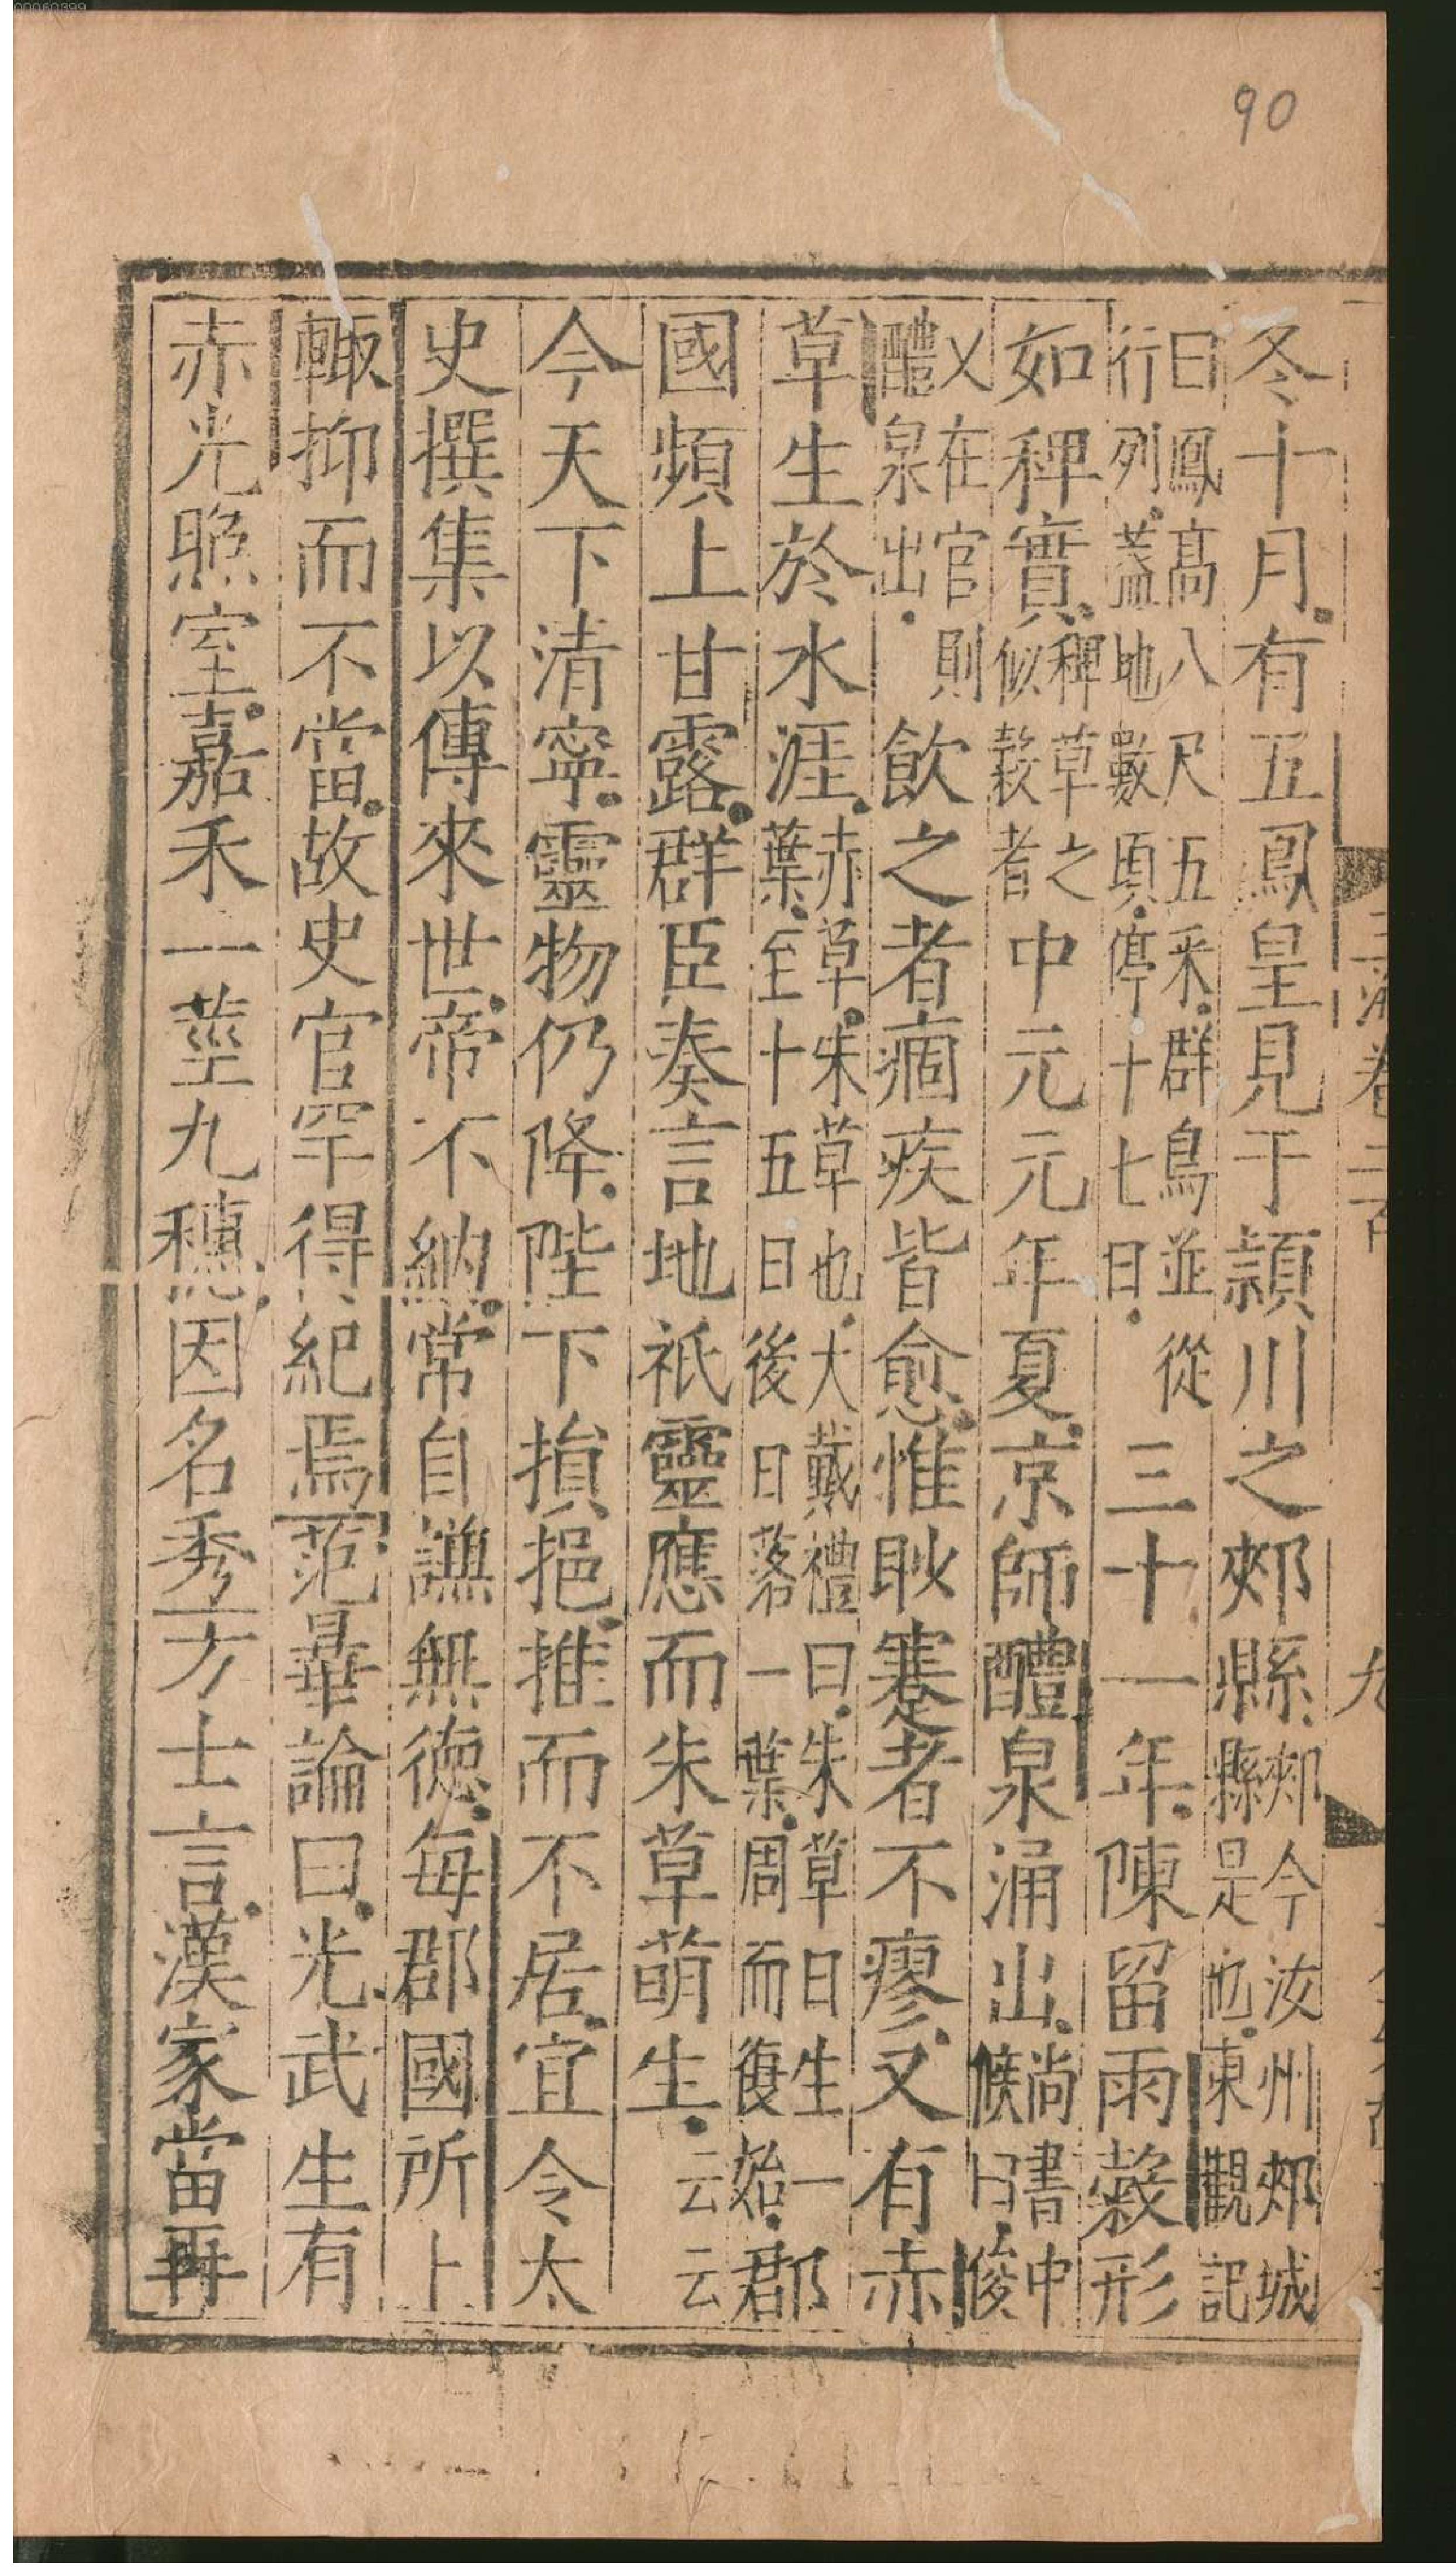 90
冬十月有五鳳皇見于潁川之郟縣郟今汝州郟城縣是也東觀記
曰鳳高八尺五采群鳥並從行列蓋地數頃停十七日三十一年陳留雨穀形
如稗實稗草之似穀者中元元年夏京師醴泉涌出尚書中候曰俊
乂在官則醴泉出飲之者痼疾皆愈惟眇蹇者不瘳又有赤
草生於水涯赤草朱草也大戴禮曰朱草日生一葉至十五日後日落一葉周而復始郡
國頻上甘露群臣奏言地祇靈應而朱草萌生云云
今天下清寧靈物仍降陛下損挹推而不居宜令太
史撰集以傳來世帝不納常自謙無德每郡國所上
輒抑而不當故史官罕得紀焉范曄論曰光武生有
赤光照室嘉禾一莖九穗因名秀方士言漢家當再